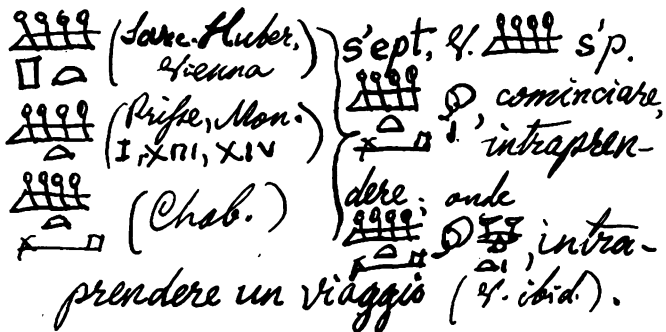 𓆷𓊪𓏏 (Sarc. Huber,
Vienna)
𓆷𓏏 (Prisse, Mon.
I, XIII, XIV)
𓆷𓏏 (Chab.)
s'ept, V. 𓆷 s'p.
𓆷𓏏 , cominciare,
intrapren-
dere; onde
𓆷𓏏 , intra-
prendere un viaggio (V. ibid.).